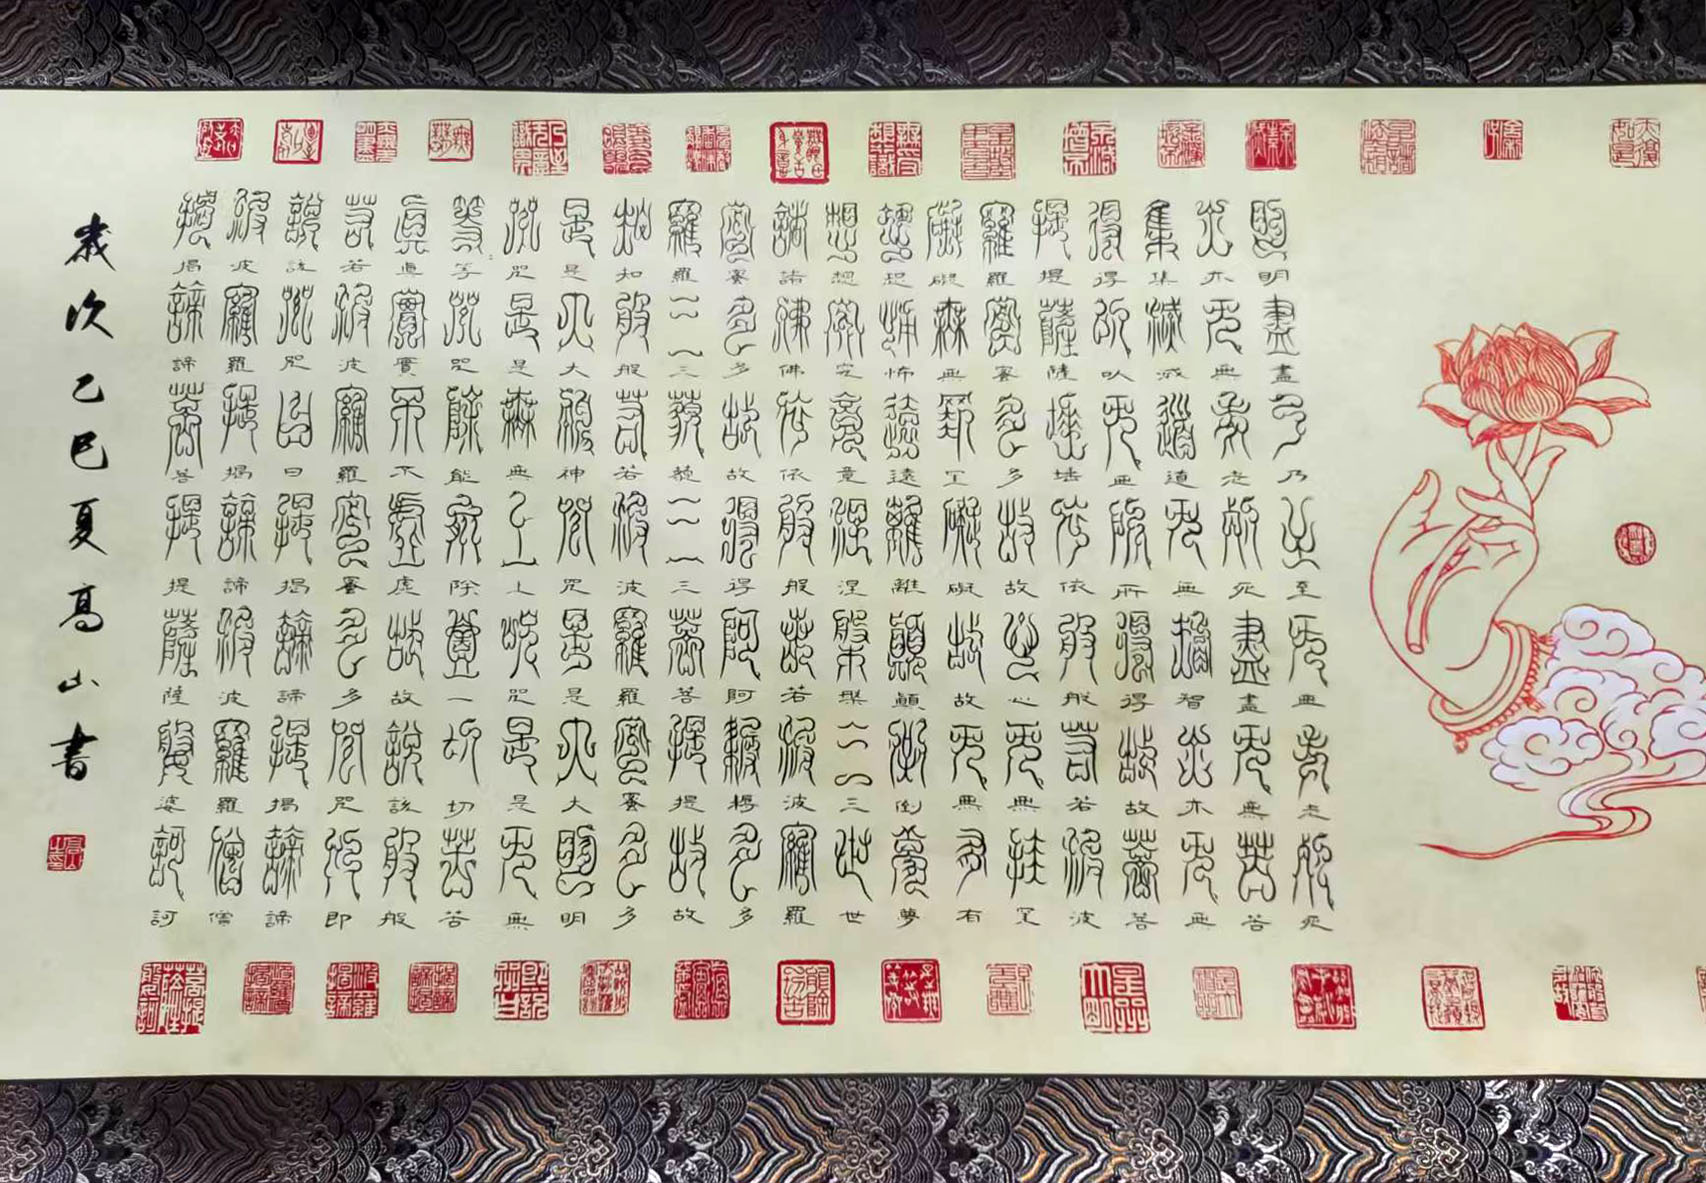 明盡乃至無老死
亦無老死盡無苦
集滅道無智亦無
得以無所得故菩
提薩埵依般若波
羅蜜多故心無罣
礙無罣礙故無有
恐怖遠離顛倒夢
想究竟涅槃三世
諸佛依般若波羅
蜜多故得阿耨多
羅三藐三菩提故
知般若波羅蜜多
是大神咒是大明
咒是無上咒是無
等咒能除一切苦
真實不虛故說般
若波羅蜜多咒即
說咒曰揭諦揭諦
波羅揭諦波羅僧
揭諦菩提薩婆訶
歲次乙巳夏高山書